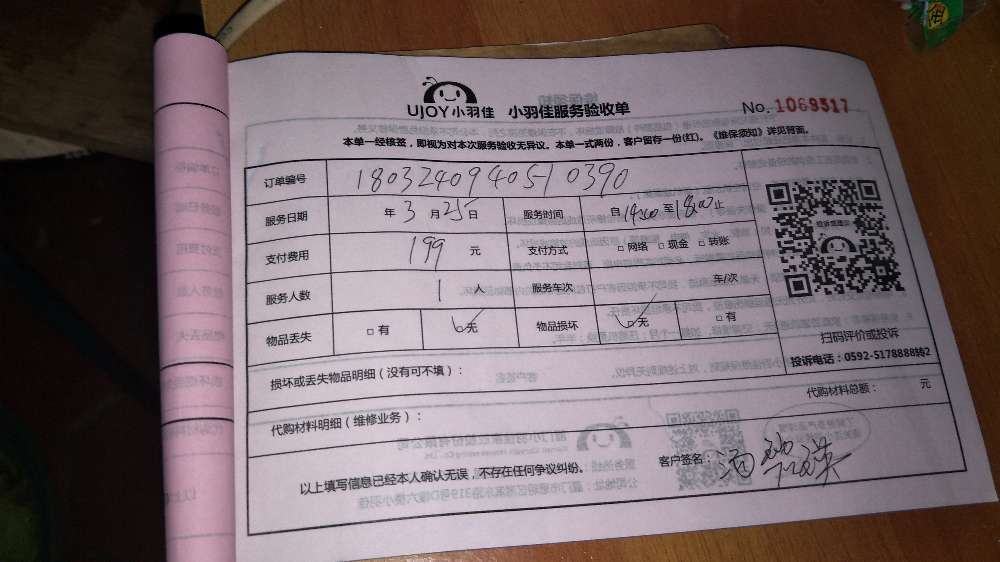 UJOY小羽佳 小羽佳服务验收单 No. 1069517
本单一经核签，即视为对本次服务验收无异议。本单一式两份，客户留存一份(红)。《维保须知》详见背面。
订单编号 180324094050390
服务日期 年 3 月 25 日 服务时间 自 14:00 至 18:00 止
支付费用 199 元 支付方式 □ 网络 □ 现金 □ 转账
服务人数 1 人 服务车次 车/次
物品丢失 □ 有 □ 无 物品损坏 □ 无 □ 有
扫码评价或投诉
投诉电话：0592-5178888转2
损坏或丢失物品明细（没有可不填）：
代购材料明细（维修业务）： 代购材料总额： 元
以上填写信息已经本人确认无误，不存在任何争议纠纷。 客户签名：